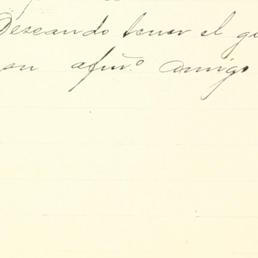 Deseando tener el
su afmo. amigo